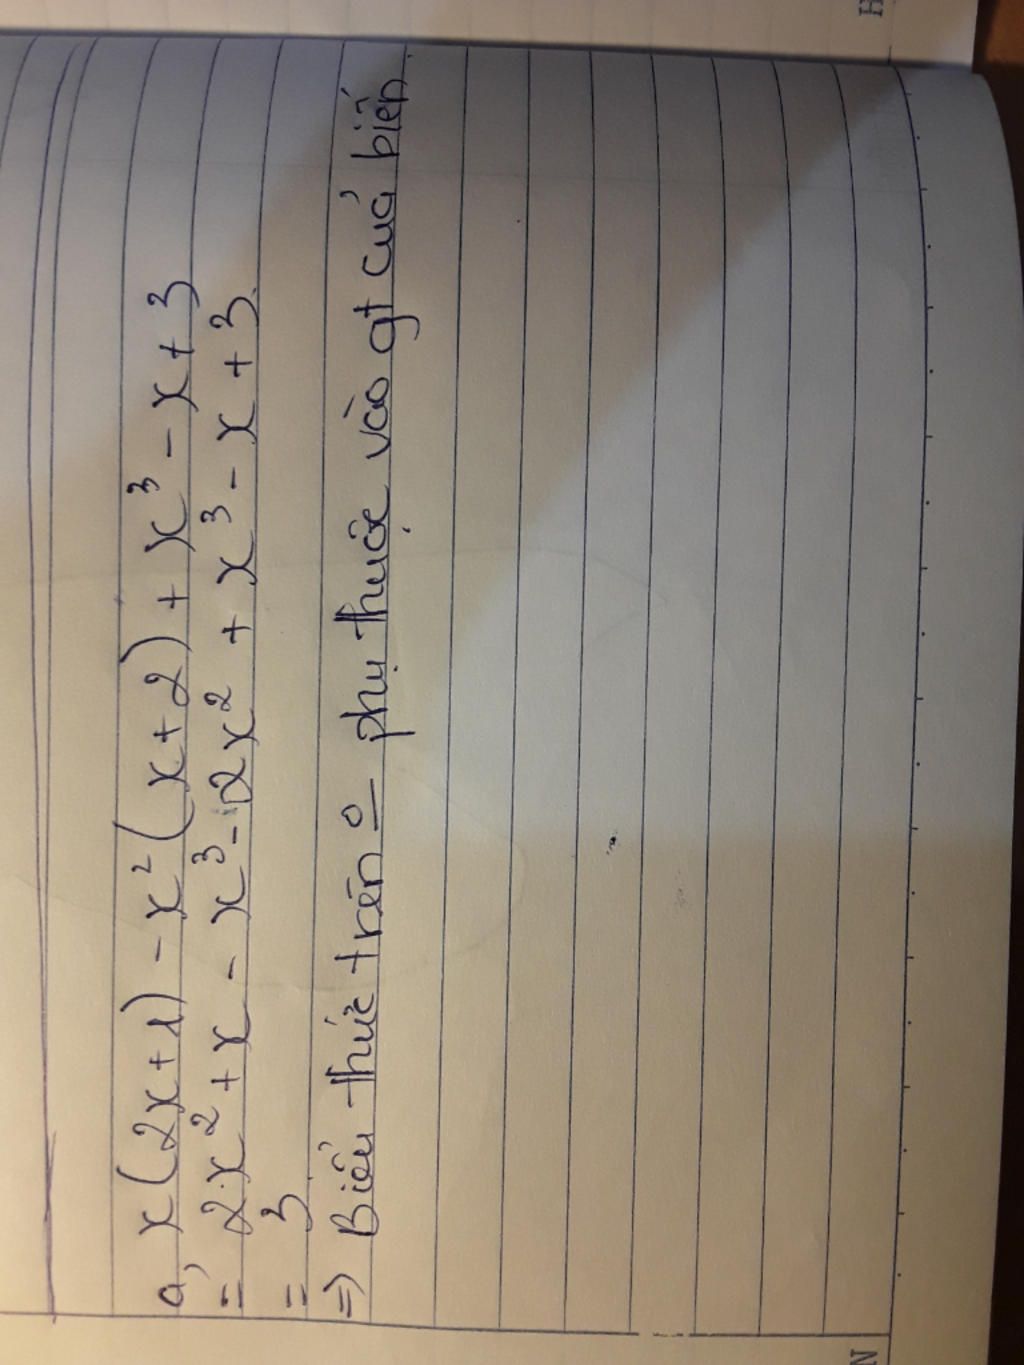 a, x(2x+1) - x²(x+2) + x³ - x + 3
= 2x² + x - x³ - 2x² + x³ - x + 3.
= 3
=> Biểu thức trên o phụ thuộc vào gt của biến.
H
N